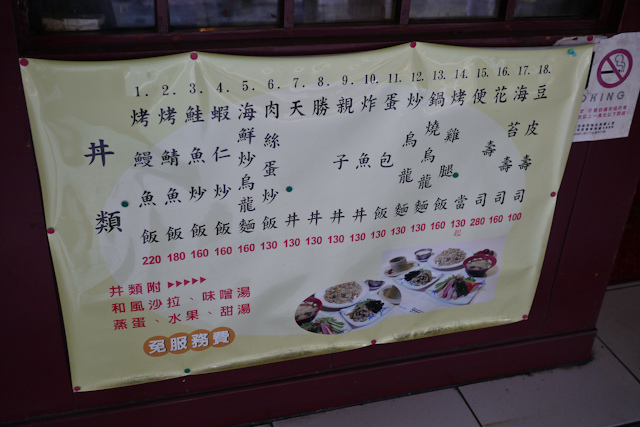 丼類
1. 烤鰻魚飯 220
2. 烤鯖魚飯 180
3. 鮭魚炒飯 160
4. 蝦仁炒飯 160
5. 海鮮炒烏龍麵 160
6. 肉絲蛋炒飯 130
7. 天丼 130
8. 勝丼 130
9. 親子丼 130
10. 炸魚丼 130
11. 蛋包飯 130
12. 炒烏龍麵 130
13. 鍋燒烏龍麵 130
14. 烤雞腿飯 160
15. 便當 130起
16. 花壽司 280
17. 海苔壽司 160
18. 豆皮壽司 100
丼類附▶▶▶▶▶
和風沙拉、味噌湯
蒸蛋、水果、甜湯
免服務費
OKING